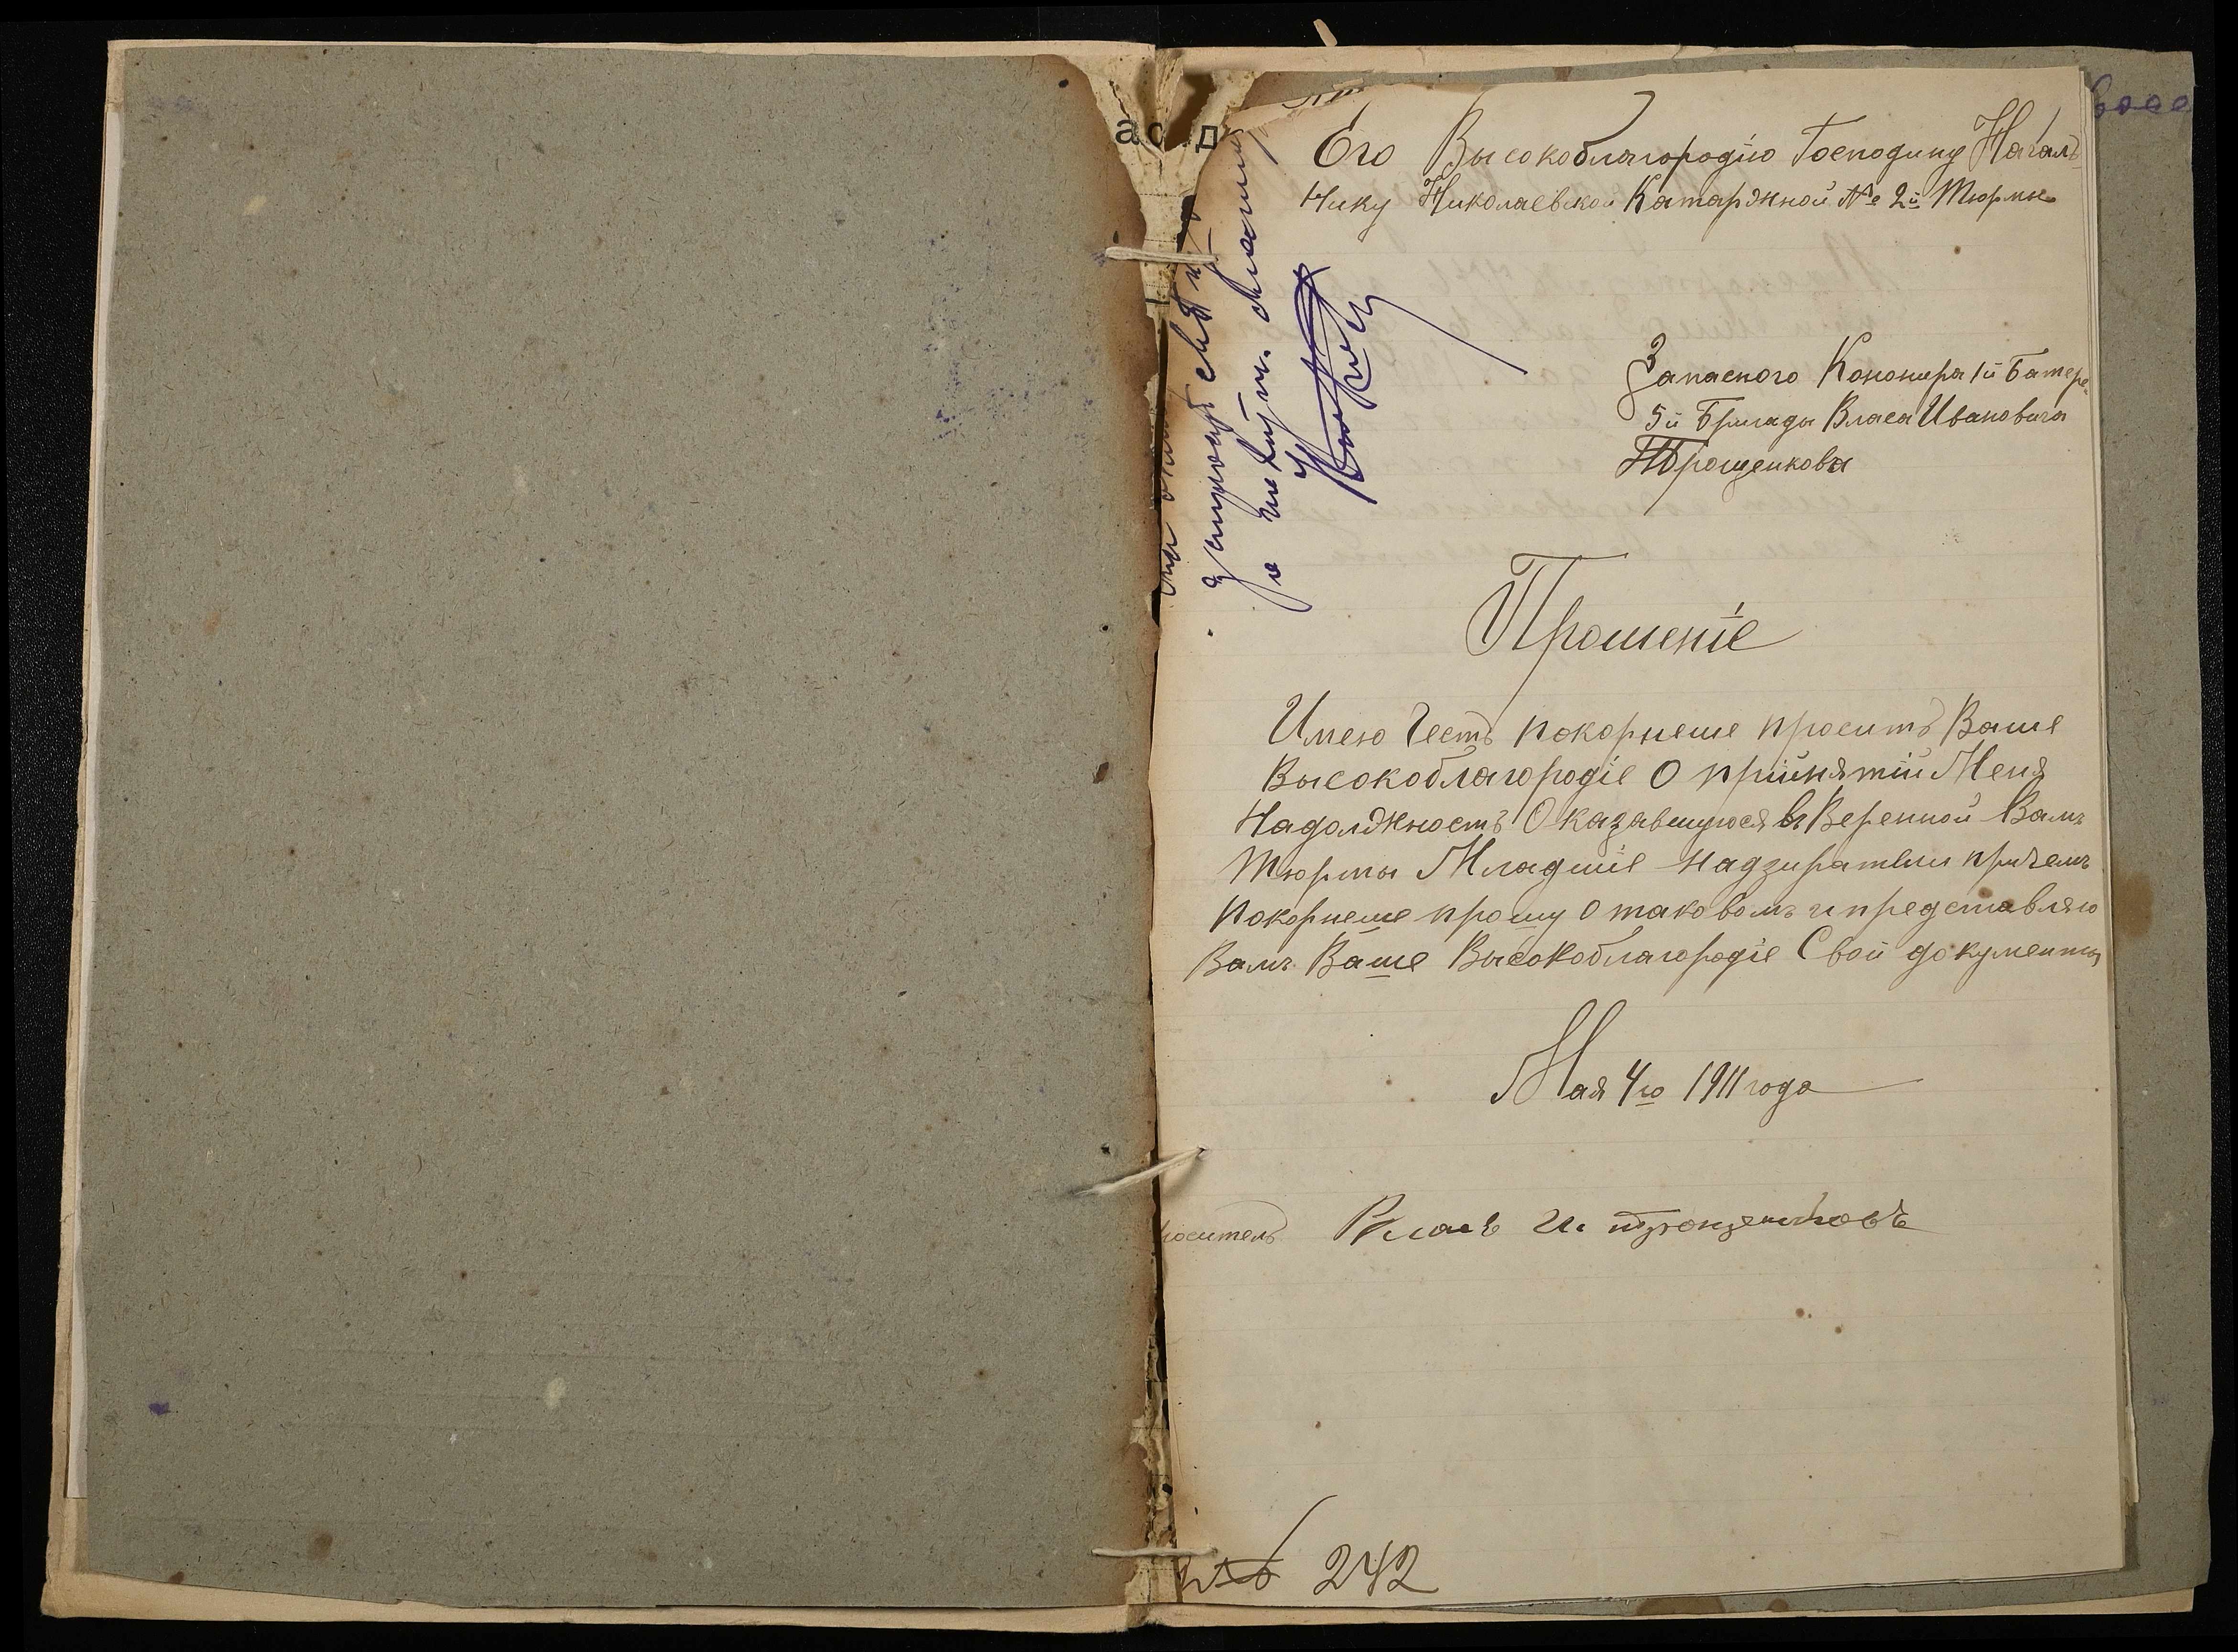 Его Высокоблагородію Господину Началь
нику Николаевской Катаржной № 2й Тюрмы
Запасного Кононира 1й Батере
5й Бригады Власа Ивановича
Трощенкова
Прошеніе
Имею Честь покорнеше просить Ваше
Высокоблагородіе О прійнятій Меня
Надолжность Оказавшуюся въ Веренной Вамъ
Тюрмы Младшіе надзиратели причемъ
покорнеше прошу о таковомъ и представляю
Вамъ Ваше Высокоблагородіе Свои документы
Мая 4го 1911 года
роситель Власъ И. Трощенковъ
242